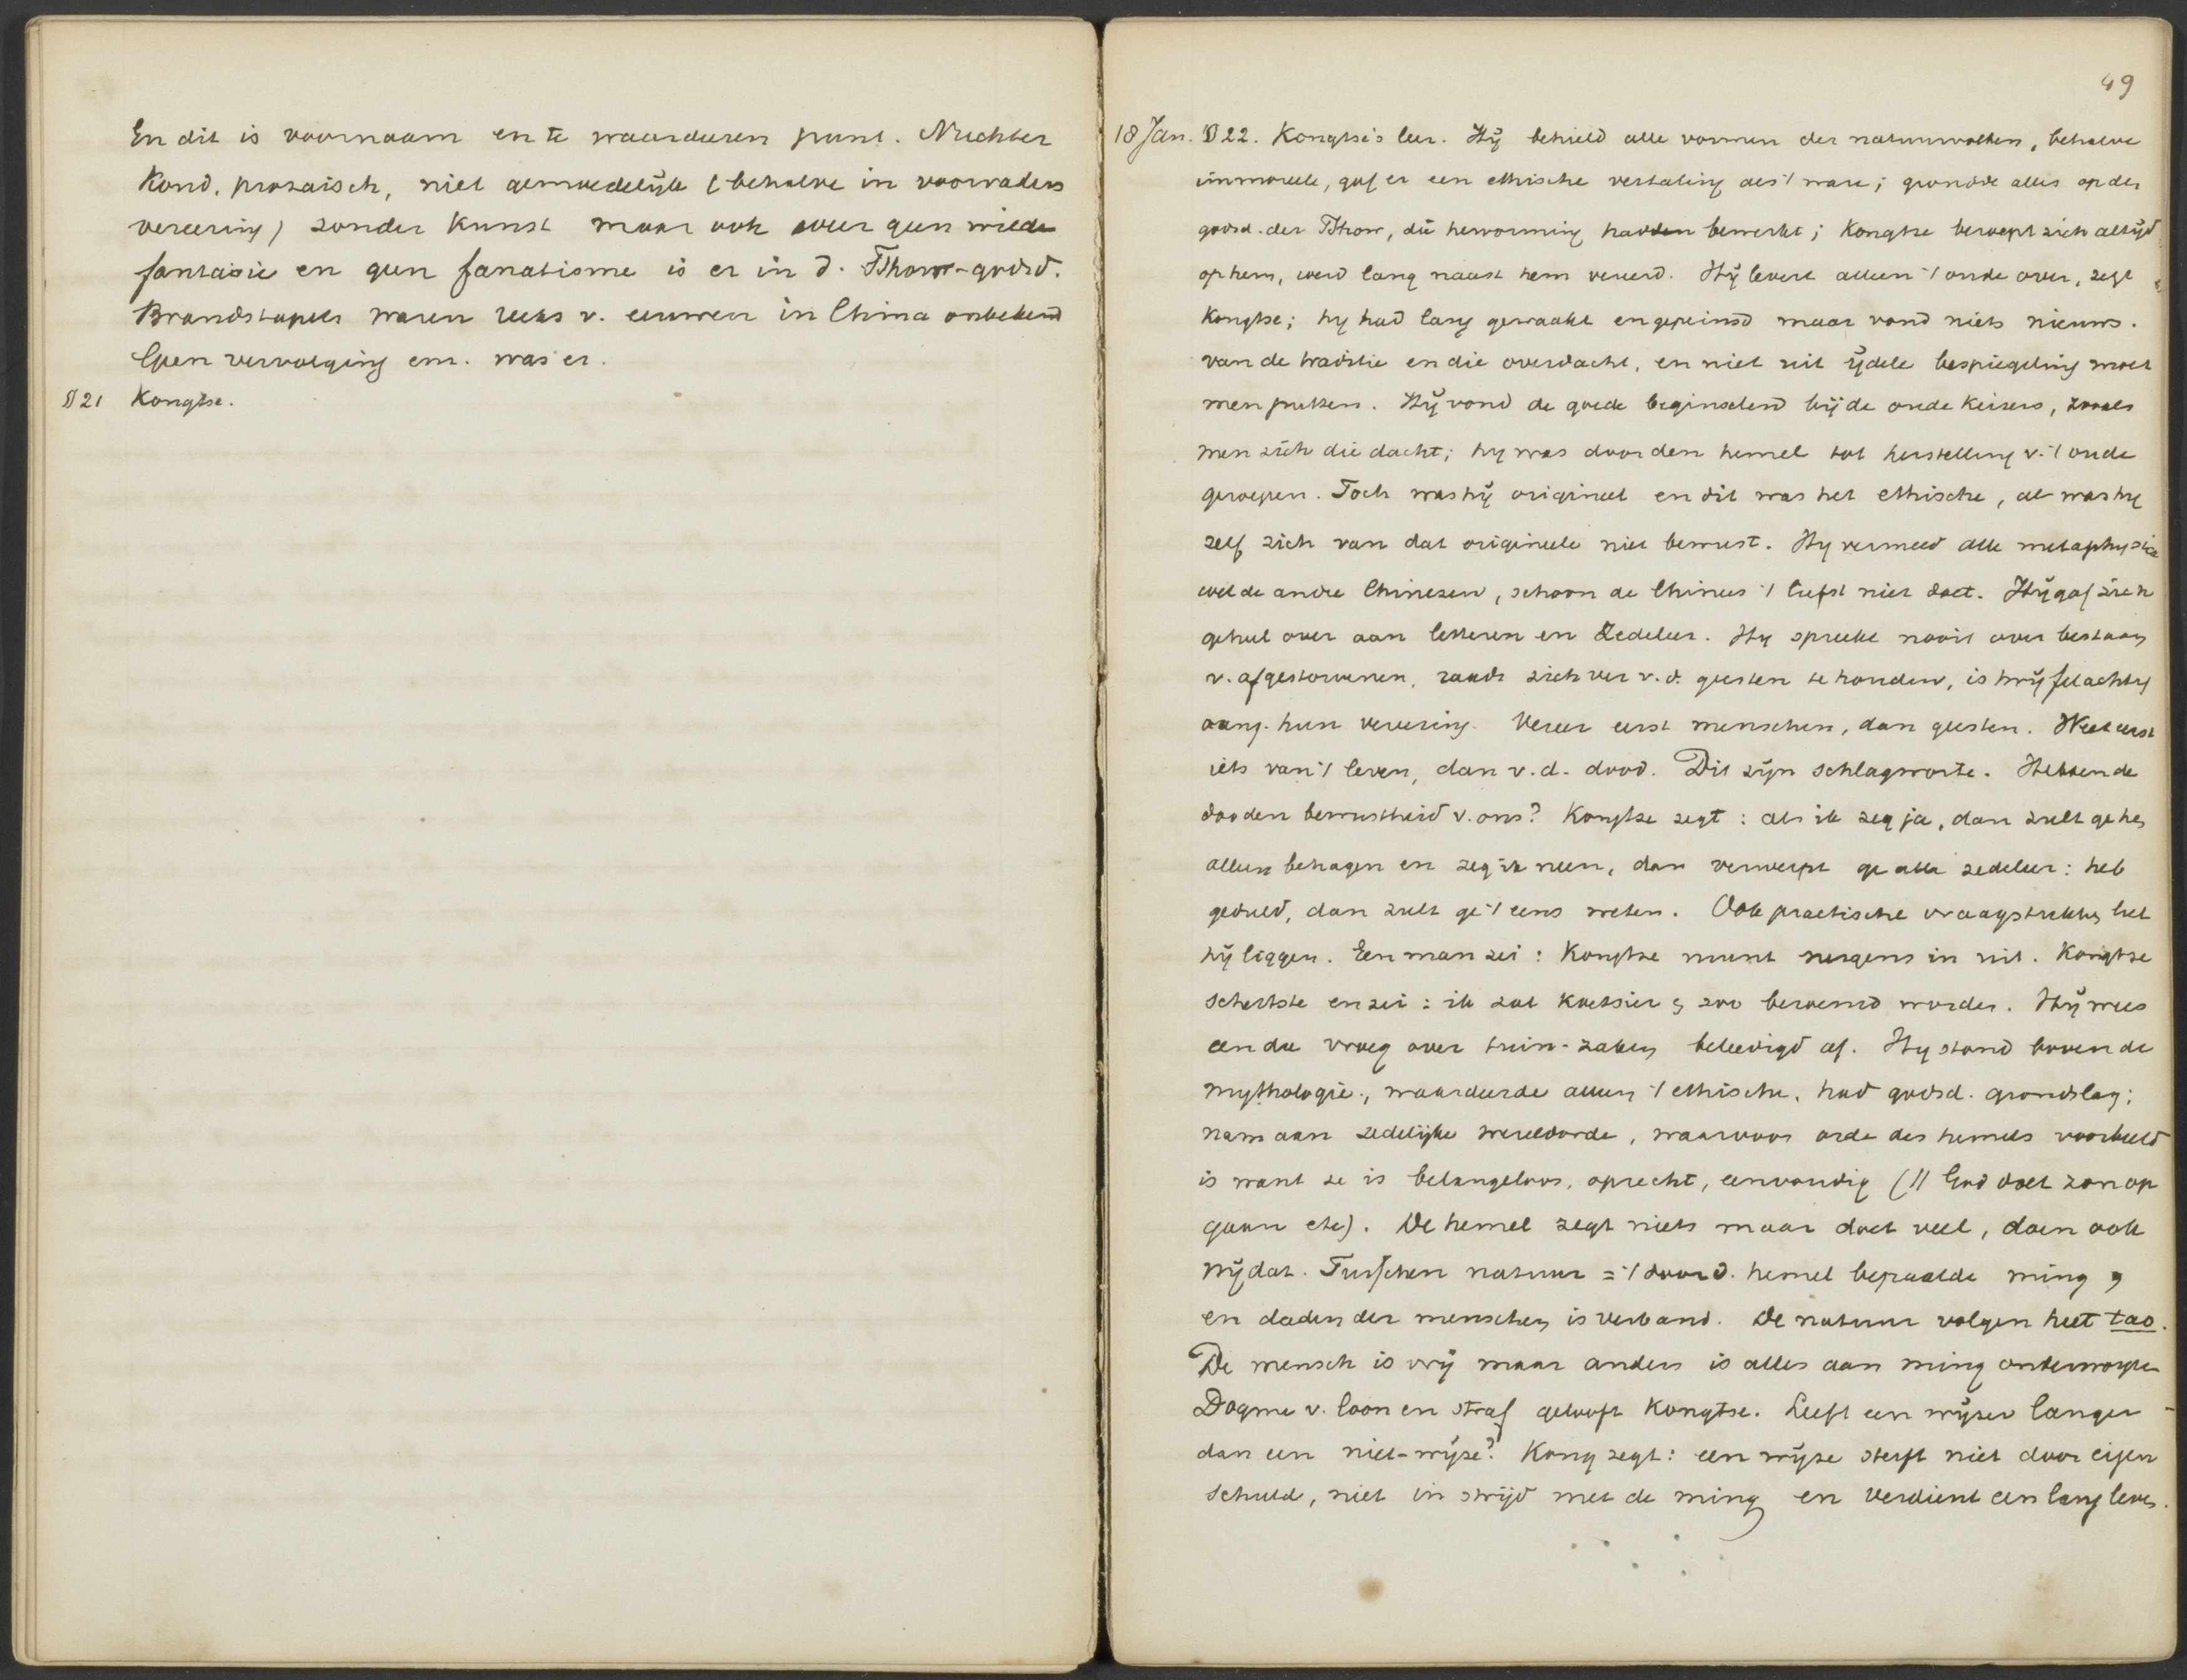 En dit is voornaam en te waardeeren punt. Nuchter
Koud, prozaisch, niet gemoedelijk (behalve in voorvaders
vereering) zonder Kunst maar ook weer geen wilde
fantasie en geen fanatisme is er in d. Tshow-godsd.
Brandstapels waren reeks v. eeuwen in China onbekend
Geen vervolging enz. was er.
§ 21 Kongtse.
49
18 Jan. § 22. Kongtse's leer. Hij behield alle vormen der natuurvolken, behalve
immoreele, gaf er een ethische vertaling als 't ware; grondde alles op den
godsd. der Tshow, die hervorming hadden bewerkt; Kongtse beroept zich altijd
op hem, werd lang naast hem vereerd. Hij levert alleen 't oude over, zegt
Kongtse; hy had lang gewaakt en gepeinsd maar vond niets nieuws.
van de traditie en die overdacht, en niet uit ijdele bespiegeling moet
men putten. Hij vond de goede beginselen bij de oude Keizers, zooals
men zich die dacht; hy was door den hemel tot herstelling v. 't oude
geroepen. Toch was hij origineel en dit was het ethische, al was hy
zelf zich van dat origineele niet bewust. Hy vermeed alle metaphysica
wel de andre Chinezen, schoon de Chinees 't liefst niet doet. Hij gaf zich
geheel over aan letteren en Zedeleer. Hy spreekt nooit over bestaan
v. afgestorvenen, raadt zich ver v. d. geesten te houden, is twijfelachtig
aang. hun vereering. Vereer eerst menschen, dan geesten. Weet eerst
iets van 't leven, dan v. d. dood. Dit zijn schlagworte. Hebben de
dooden bewustheid v. ons? Kongtse zegt: als ik zeg ja, dan zult ge hen
alleen behagen en zeg ik neen, dan verwerpt ge alle zedeleer: heb
geduld, dan zult ge 't eens weten. Ook practische vraagstukken liet
hij liggen. Een man zei: Kongtse munt nergens in uit. Kongtse
schertste en zei: ik zal Koetsier en zoo beroemd worden. Hij wees
een die vroeg over tuin-zaken beleedigd af. Hy stond boven de
mythologie, waardeerde alleen 't ethische, had godsd. grondslag;
nam aan zedelijke wereldorde, waarvoor orde des hemels voorbeeld
is want ze is belangeloos, oprecht, eenvoudig (// God doet zon op
gaan etc). De hemel zegt niets maar doet veel, doen ook
wij dat. Tusschen natuur = 't door d. hemel bepaalde ming,
en daden der menschen is verband. De natuur volgen heet tao.
De mensch is vrij maar anders is alles aan ming onderworpen
Dogme v. loon en straf gelooft Kongtse. Leeft een wijzer langer
dan een niet-wijze? Kong zegt: een wijze sterft niet door eigen
schuld, niet in strijd met de ming en verdient een lang leven.